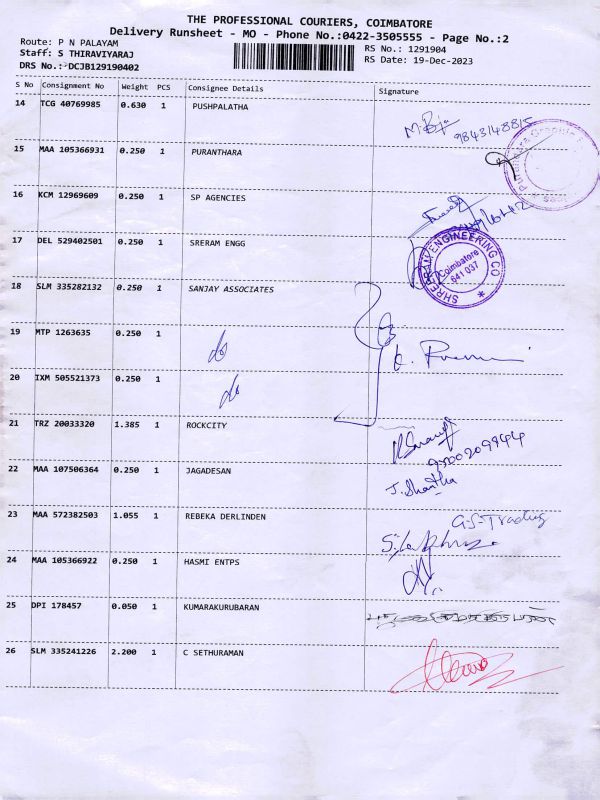 THE PROFESSIONAL COURIERS, COIMBATORE
Delivery Runsheet - MO - Phone No.:0422-3505555 - Page No.:2
Route: P N PALAYAM
RS No.: 1291904
Staff: S THIRAVIYARAJ
RS Date: 19-Dec-2023
DRS No.: DCJB129190402
S No Consignment No Weight PCS Consignee Details Signature
14 TCG 40769985 0.630 1 PUSHPALATHA
9843148815
15 MAA 105366931 0.250 1 PURANTHARA
16 KCM 12969609 0.250 1 SP AGENCIES
17 DEL 529402501 0.250 1 SRERAM ENGG
ENGINEERING CO
Coimbatore
641 037
18 SLM 335282132 0.250 1 SANJAY ASSOCIATES
19 MTP 1263635 0.250 1 do
20 IXM 505521373 0.250 1 do
21 TRZ 20033320 1.385 1 ROCKCITY
22 MAA 107506364 0.250 1 JAGADESAN J. Shantha
23 MAA 572382503 1.055 1 REBEKA DERLINDEN G.S-Trading
24 MAA 105366922 0.250 1 HASMI ENTPS
25 DPI 178457 0.050 1 KUMARAKURUBARAN
26 SLM 335241226 2.200 1 C SETHURAMAN